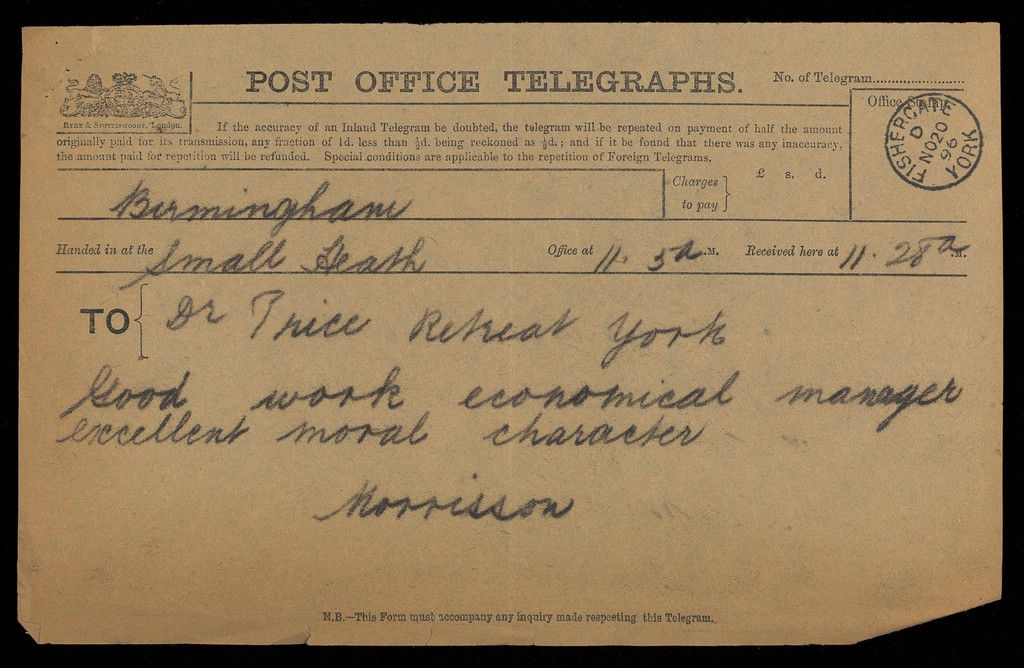 POST OFFICE TELEGRAPHS.
No. of Telegram
EYRE & SPOTTISWOODE, London.
Office Stamp.
FISHERGATE YORK
D
NO 20
96
If the accuracy of an Inland Telegram be doubted, the telegram will be repeated on payment of half the amount
originally paid for its transmission, any fraction of 1d. less than ½d. being reckoned as ½d.; and if it be found that there was any inaccuracy,
the amount paid for repetition will be refunded. Special conditions are applicable to the repetition of Foreign Telegrams.
Charges to pay
£ s. d.
Birmingham
Handed in at the Small Heath Office at 11.5a .M. Received here at 11.28a .M.
TO { Dr Price Retreat York
Good work economical manager
excellent moral character
Morrisson
N.B.—This Form must accompany any inquiry made respecting this Telegram.